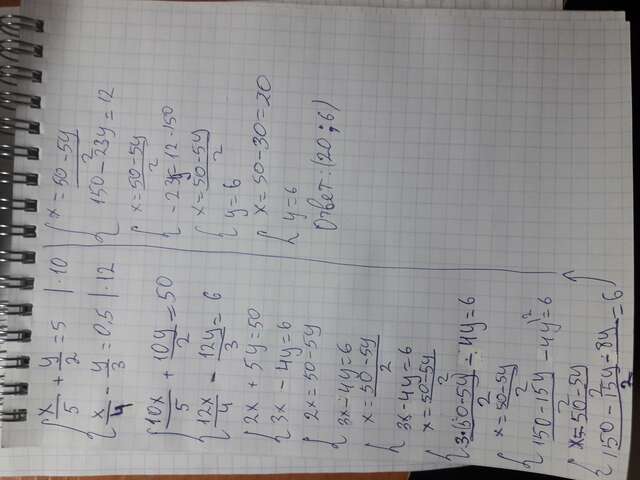 x/5 + y/2 = 5 | ·10
x/4 - y/3 = 0,5 | ·12
10x/5 + 10y/2 = 50
12x/4 - 12y/3 = 6
2x + 5y = 50
3x - 4y = 6
2x = 50 - 5y
3x - 4y = 6
x = 50-5y/2
3x - 4y = 6
x = 50-5y/2
3·(50-5y)/2 - 4y = 6
x = 50-5y/2
150-15y/2 - 4y^2 = 6
x = 50-5y/2
150-15y-8y/2 = 6
x = 50-5y/2
150 - 23y = 12
x = 50-5y/2
-23y = 12-150
x = 50-5y/2
y = 6
x = 50-30 = 20
y = 6
Ответ: (20;6)